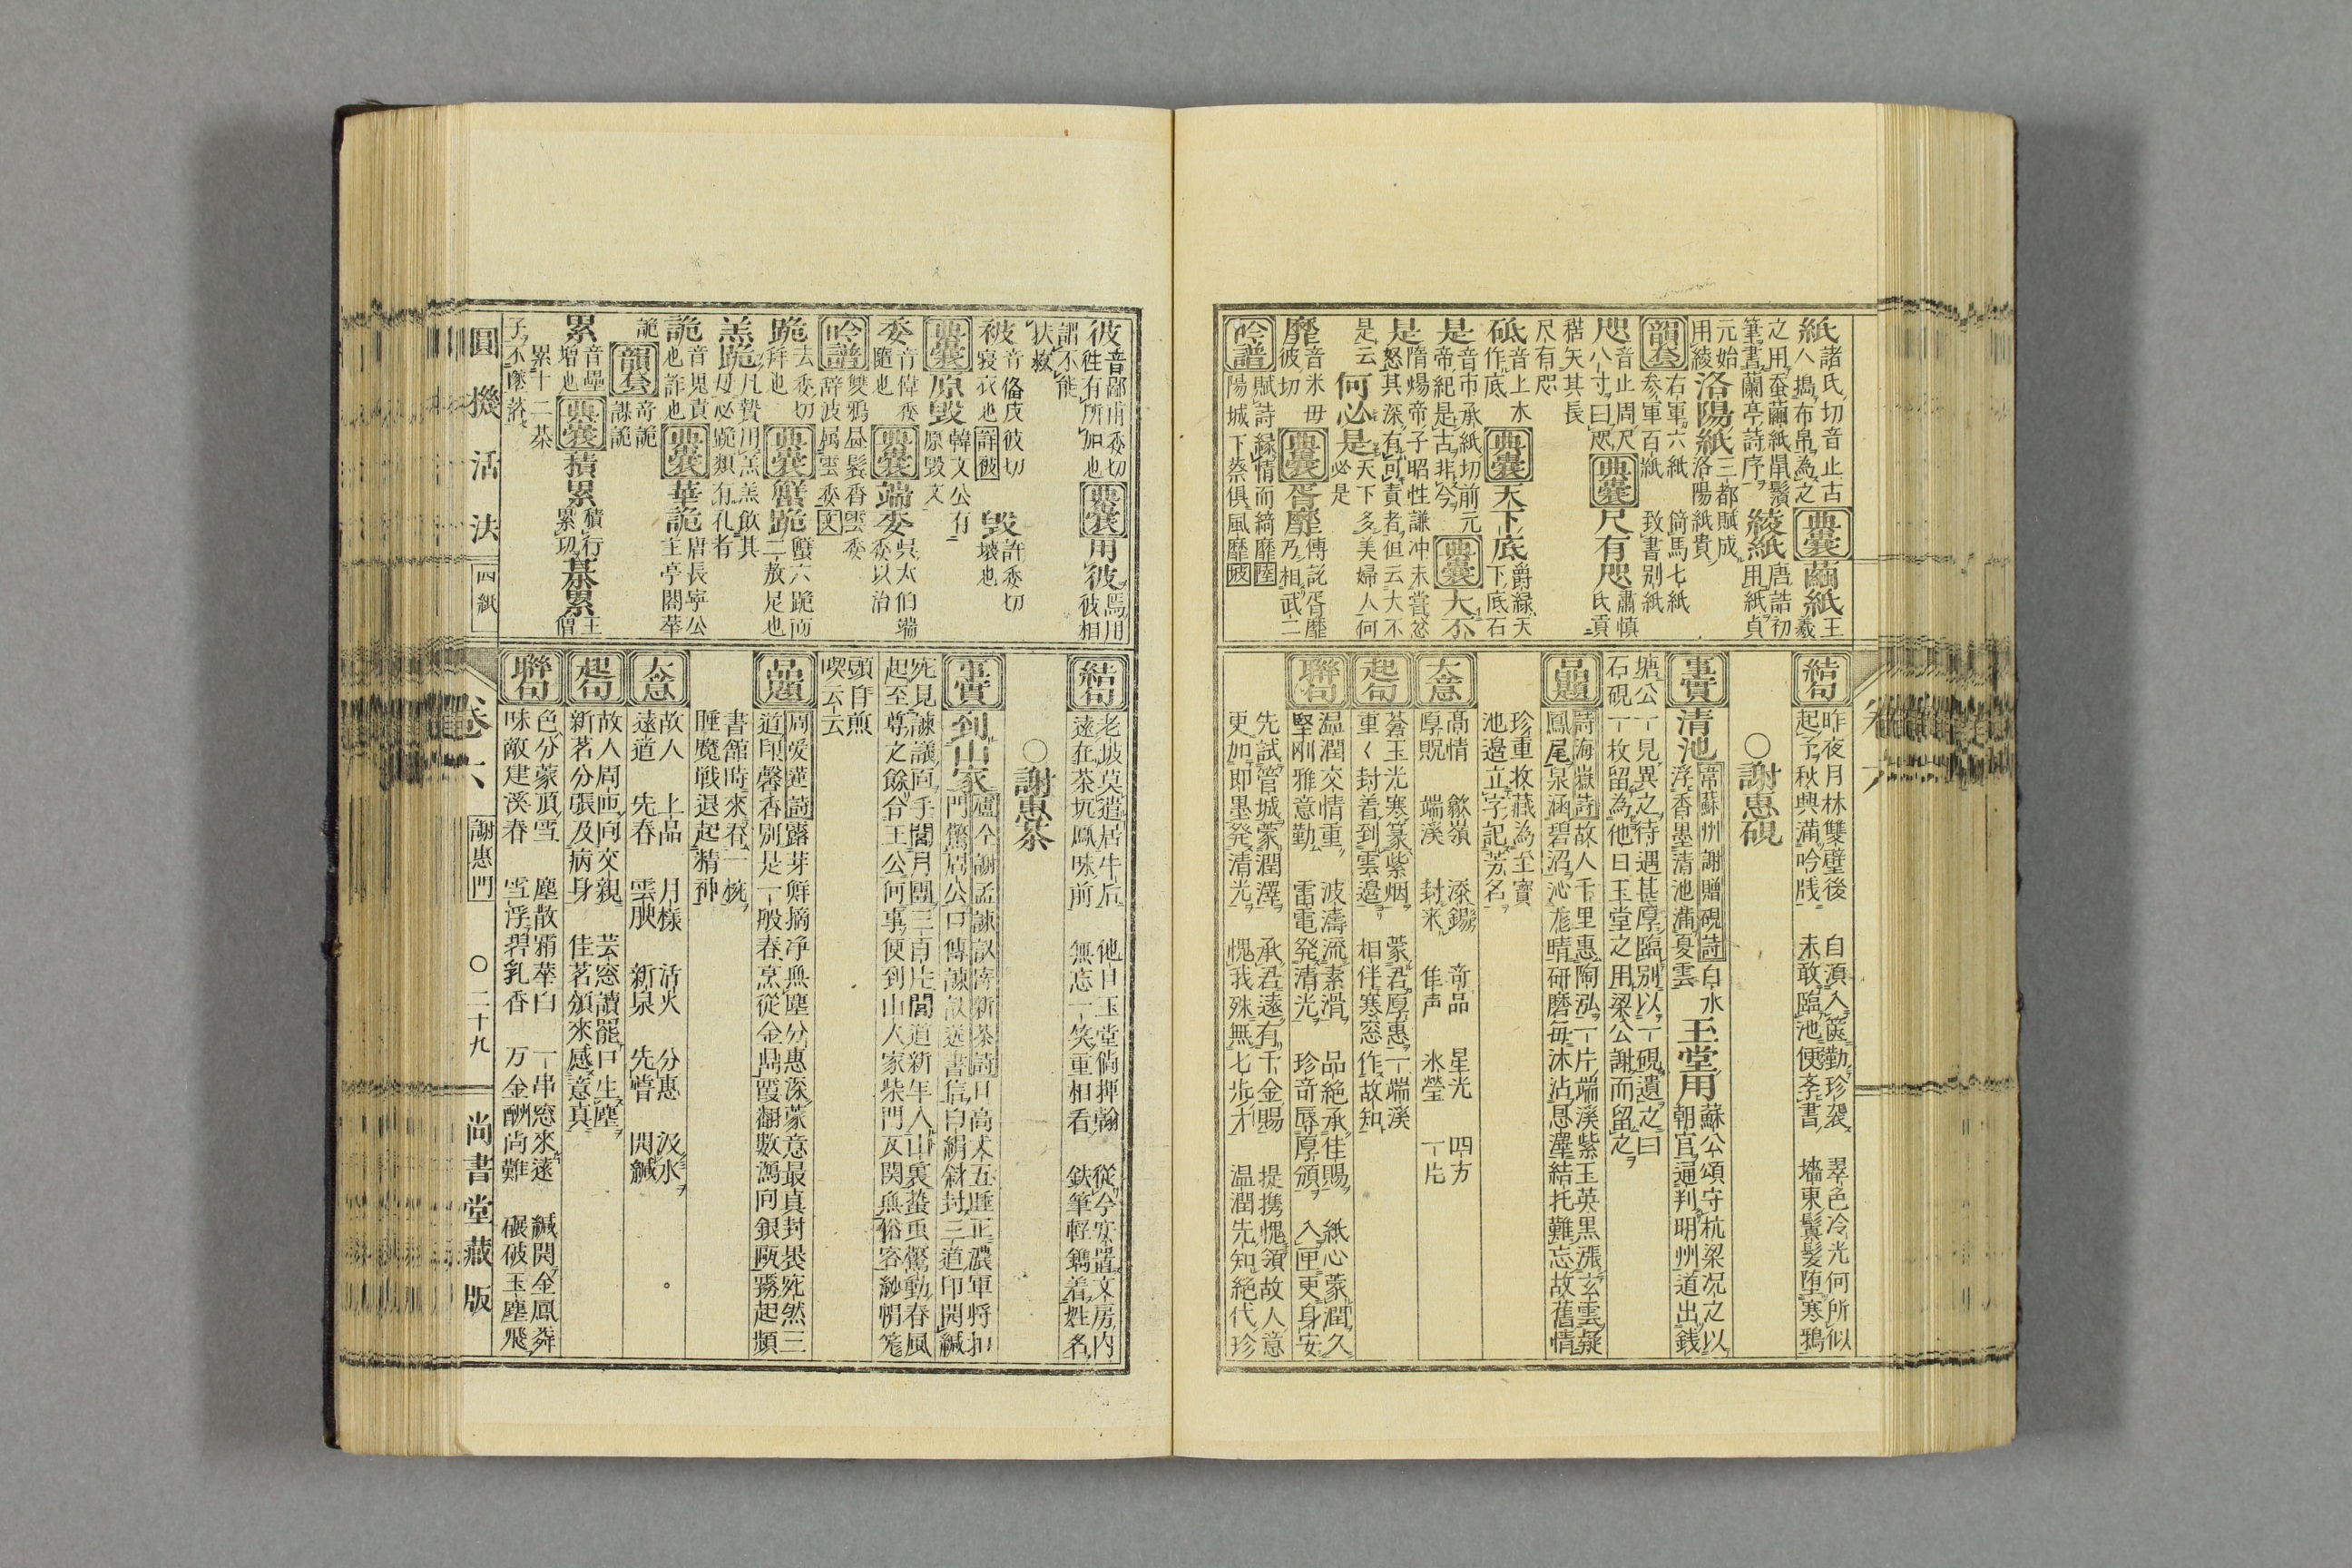 紙 諸氏切音止古
人搗布帛為之
典囊 繭紙 王羲
之用蚕繭紙鼠鬚
筆書蘭亭詩序
綾紙 唐誥初
用紙貞
元始
用綾
洛陽紙 三都賦成
洛陽紙貴
韻套 右軍六紙 箭馬七紙
参軍百紙 致書别紙
咫 音止周尺
八寸曰咫
典囊 尺有咫 肅慎
氏貢
楛矢其長
尺有咫
砥 音上水
作底
典囊 天下底 爵緑天
下底石
是 音市承紙切前元
帝紀是古非今
典囊 大不
是 隋煬帝子昭性謙冲未嘗忿
怒其深有可責者但云大不
是云
何必是 天下多美婦人何
必是
靡 音米毋
彼切
典囊 胥靡 傳説胥靡
乃相武二
吟譜 賦詩縁情而綺靡 陸
陽城下蔡俱風靡 陂
結句 昨夜月林雙璧後 自湏入篋勤珍襲 翠色冷光何所似
起予秋興満吟牋 未敢臨池便李書 墻東鬒髪堕寒鴉
○謝惠硯
事實 清池 常蘇州謝贈硯詩白水
浮香墨清池満夏雲
玉堂用 蘇公頌守杭梁况之以
朝官通判明州道出錢
塘公一見異之待遇甚厚臨别以一硯遺之曰
石硯一枚留為他日玉堂之用梁公謝而留之
品題 詩海嶽詩故人千里惠陶泓一片端溪紫玉英黒漲玄雲凝
鳳尾泉涵碧沼沁龍晴研磨毎沐沾恩澤結托難忘故舊情
珍重收藏為至寳
池邉立字記芳名
大意 髙情 歙嶺 添錫 竒品 星光 四方
厚貺 端溪 封来 隹声 氷瑩 一片
起句 蒼玉光寒篆紫烟 蒙君厚惠一端溪
重〻封着到雲邉 相伴寒窓作故知
聯句 温潤交情重 波濤流素滑 品絶承佳賜 紙心蒙潤久
堅刚雅意勤 雷電発清光 珍竒辱厚頒 入匣更身安
先試管城蒙潤澤 承君遠有千金賜 提携愧領故人意
更加即墨発清光 愧我殊無七歩才 温潤先知絶代珍
彼 音鄙甫委切
徃有所加也
典囊 用彼 焉用
彼相
謂不能
扶救
被 音僃皮彼切
寝衣也 詳被
毁 許委切
壊也
典囊 原毁 韓文公有
原毁文
委 音偉委
隨也
典囊 端委 呉太伯端
委以治
吟譜 雙鴉昼鬂香雲委
辞波属雲委 文
跪 去委切
拜也
典囊 蟹跪 蟹六跪而
二敖足也
羔跪 凡贄用羔羔飲其
母必跪類有孔者
詭 音鬼責
也詐也
典囊 華詭 唐長寕公
主亭閣華
詭
韻套 竒詭
謀詭
累 音壘
增也
典囊 積累 積行
累功
棊累 王
僧
累十二棊
子不墜落
結句 老坡莫遣居牛后 他日玉堂倘揮翰 從今安置文房内
遠在茶坑鳳味前 無忘一笑重相看 鉄筆輕鐫着姓名
○謝惠茶
事實 到山家 盧仝謝孟諫議寄新茶詩日高丈五睡正濃軍将扣
門驚周公口傳諫議送書信白絹斜封三道印開緘
宛見諫議面手閲月團三百片聞道新年入山裏蟄虫驚動春風
起至尊之餘合王公何事便到山人家柴門反関無俗客紗帽笼
頭自煎
喫云云
品題 周愛蓮詩露芽鮮摘浄無塵分惠深蒙意最真封裹宛然三
道印馨香别是一般春烹從金鼎霞翻數瀉向銀甌霧起頻
書舘時來春一椀
睡魔戦退起精神
大意 故人 上品 月様 活火 分惠 汲水
遠道 先春 雲腴 新泉 先甞 開緘
起句 故人周匝向交親 芸窓讀罷口生塵
新茗分張及病身 佳茗頒來感意真
聯句 色分蒙頂雪 塵散霜華白 一串窓來遠 緘開金鳳舞
味敵建溪春 雪浮碧乳香 万金酬尚難 碾破玉塵飛
圓機活法 四紙 卷六 謝惠門 ○二十九 尚書堂藏版